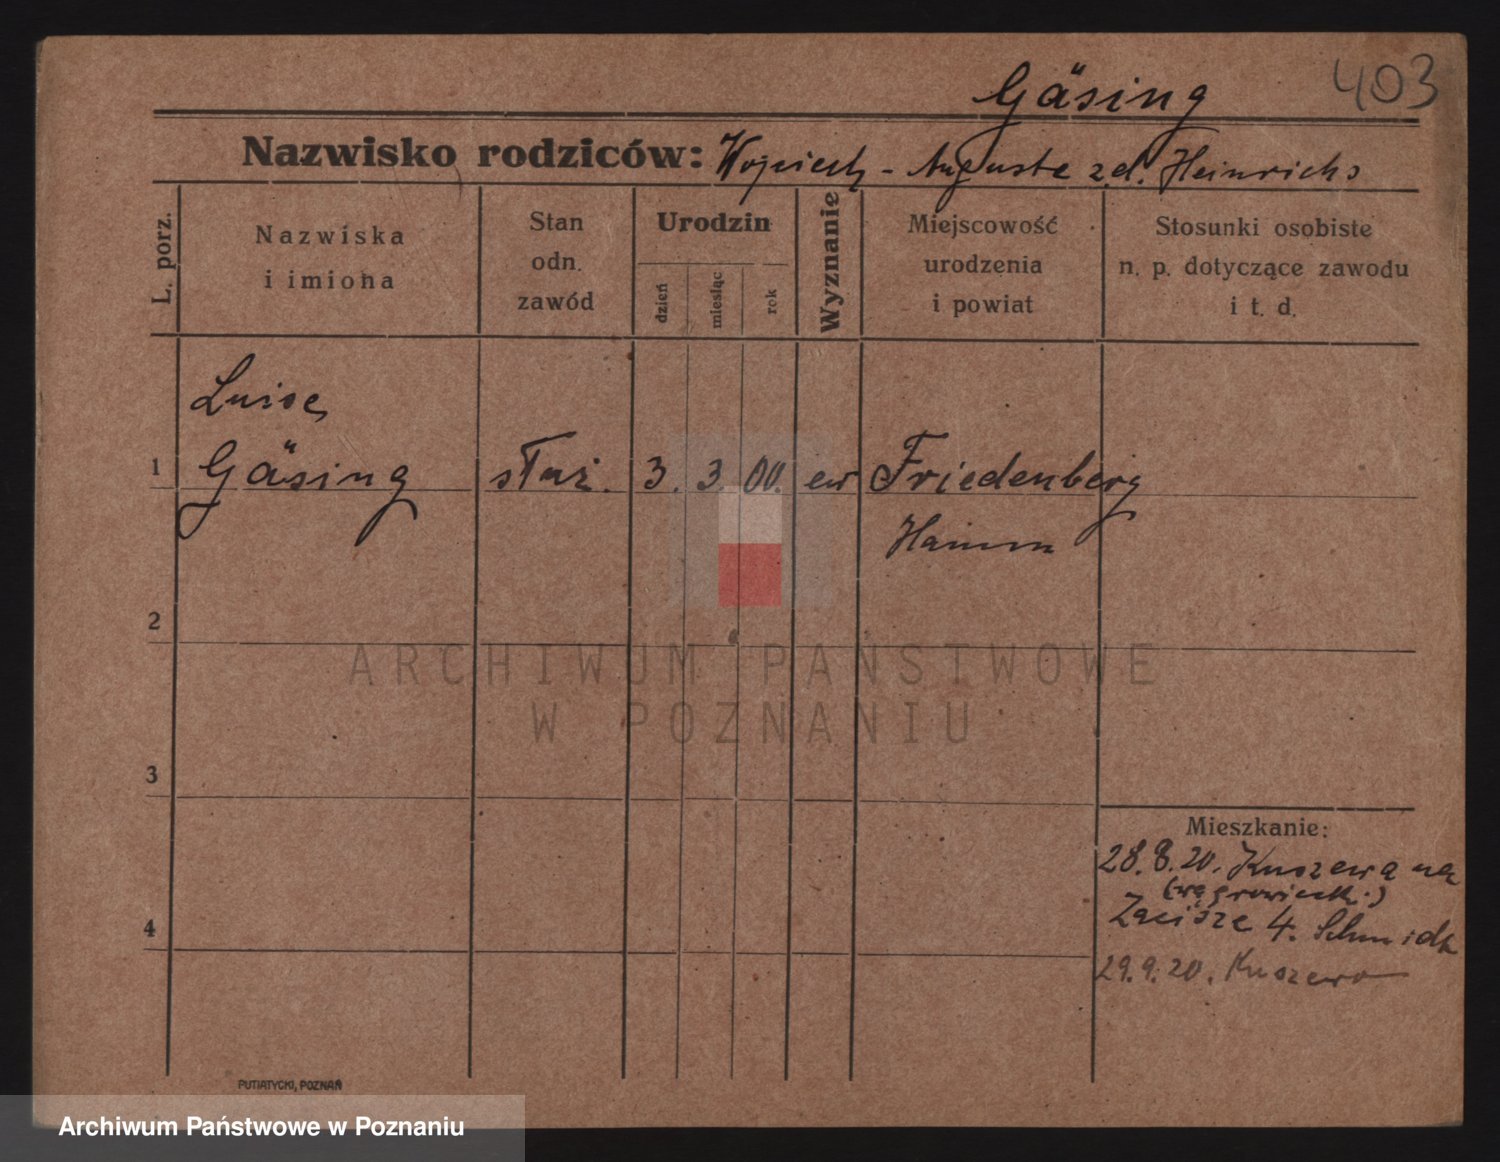 Gäsing 403
Nazwisko rodziców: Wojciech - Auguste z.d. Heinrichs
L. porz.
Nazwiska
i imiona
Stan
odn.
zawód
Urodzin
dzień
miesiąc
rok
Wyznanie
Miejscowość
urodzenia
i powiat
Stosunki osobiste
n. p. dotyczące zawodu
i t. d.
Luise,
1 Gäsing służ. 3. 3. 00. ew Friedenberg
Hamm
2
ARCHIWUM PAŃSTWOWE
W POZNANIU
3
Mieszkanie:
28.8.20. Kuszewa na
(wągrowieck.)
4 Zacisze 4. Schmidt
29.9.20. Kuszewo
PUTIATYCKI, POZNAŃ
Archiwum Państwowe w Poznaniu